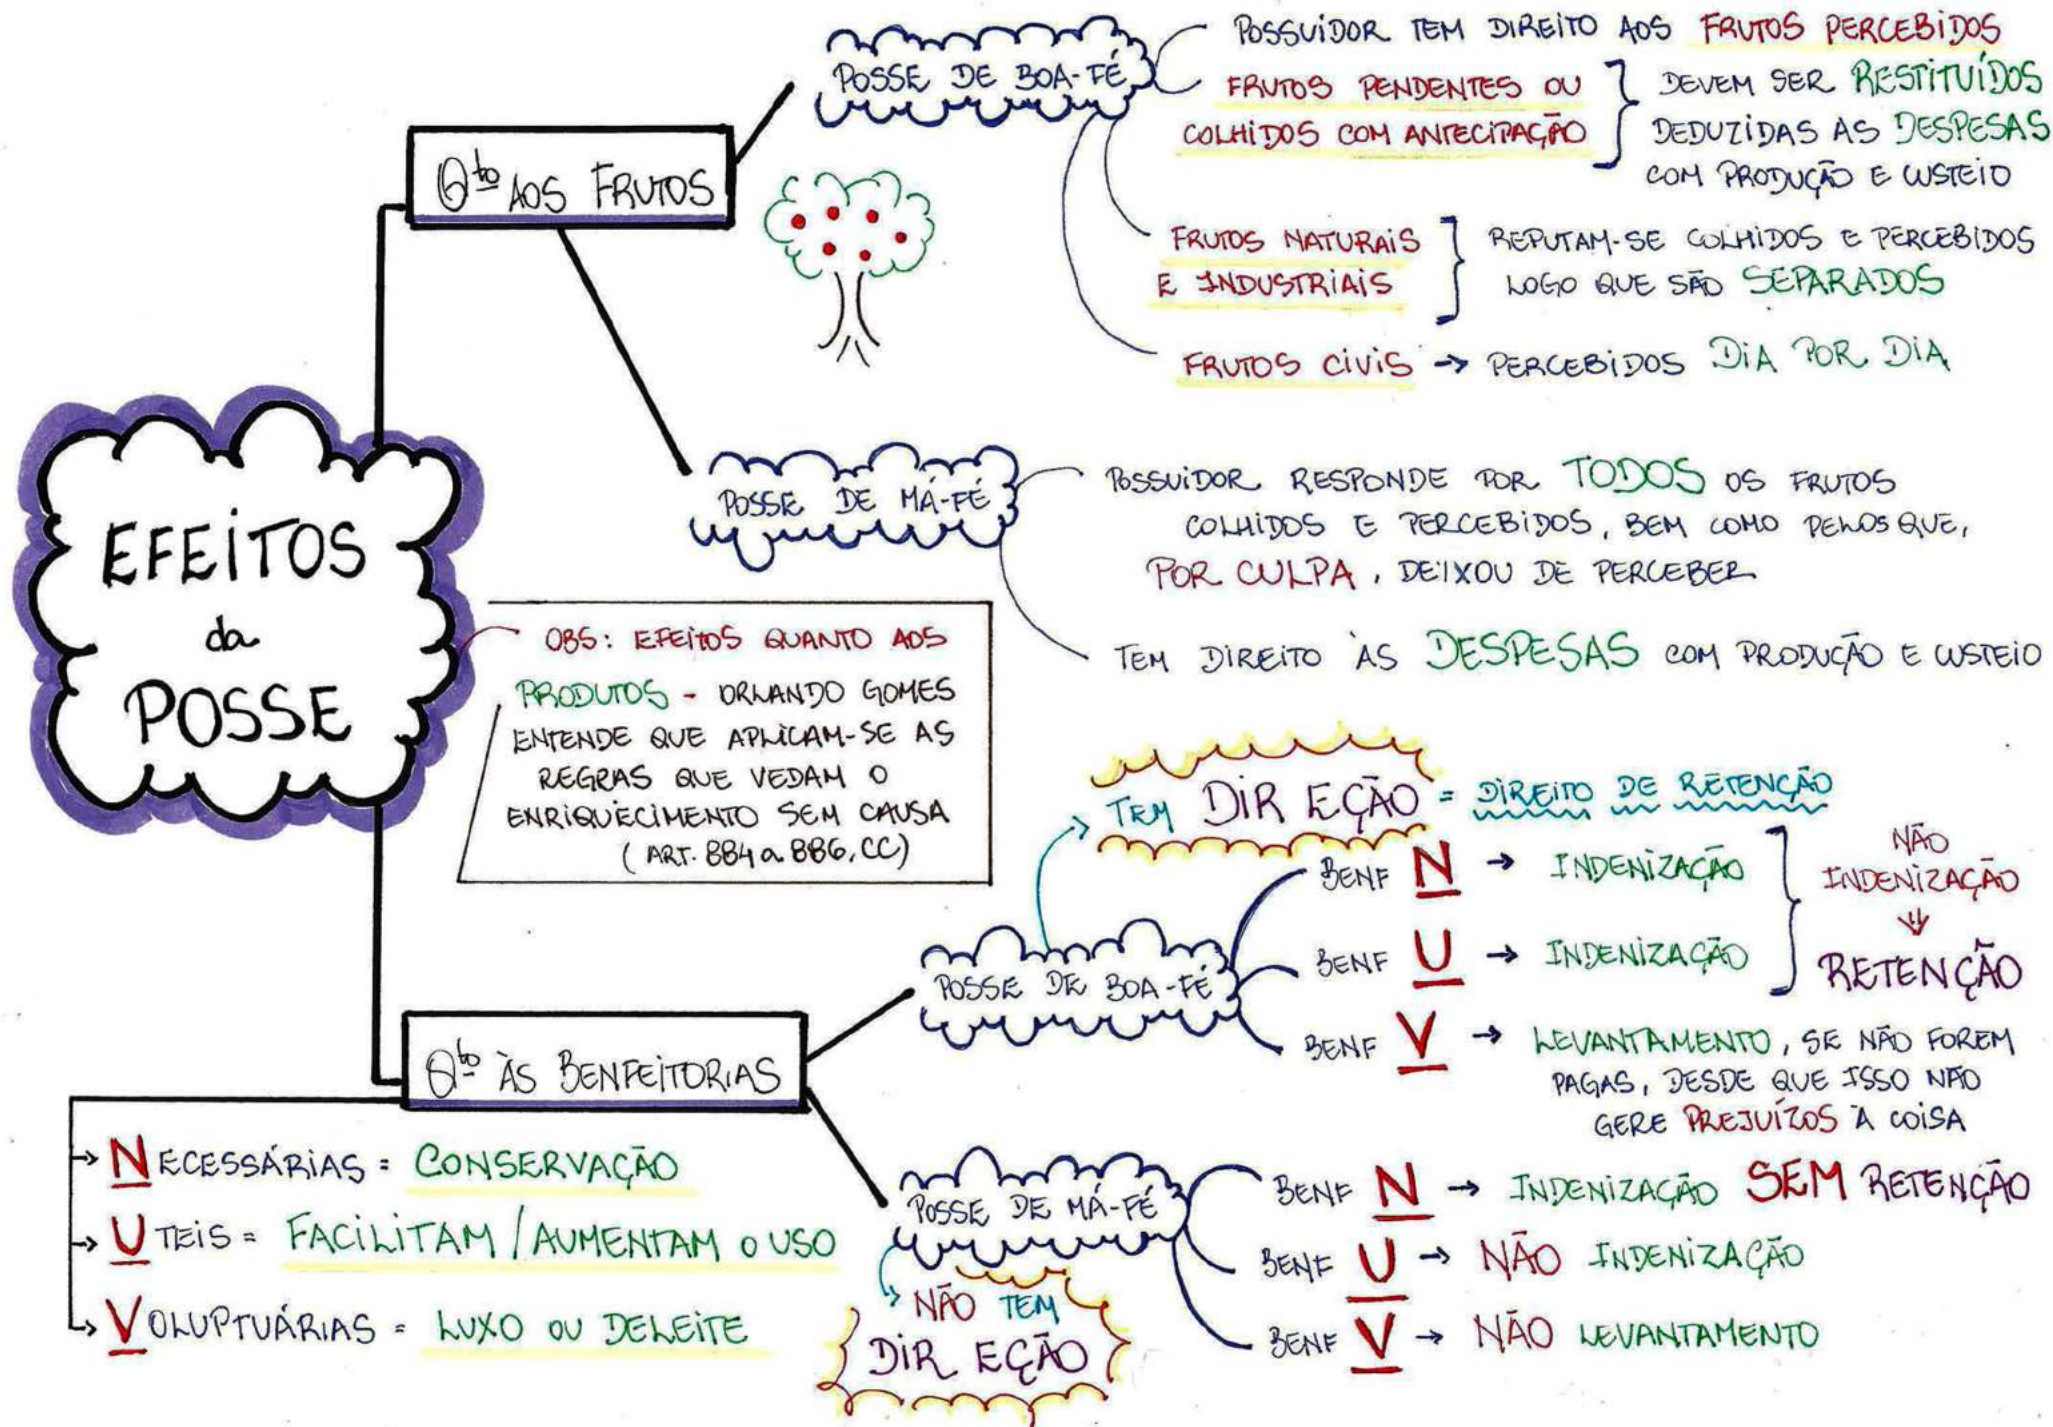 EFEITOS
da
POSSE
Qto AOS FRUTOS
POSSE DE BOA-FÉ
POSSUIDOR TEM DIREITO AOS FRUTOS PERCEBIDOS
FRUTOS PENDENTES OU
COLHIDOS COM ANTECIPAÇÃO
DEVEM SER RESTITUÍDOS
DEDUZIDAS AS DESPESAS
COM PRODUÇÃO E CUSTEIO
FRUTOS NATURAIS
E INDUSTRIAIS
REPUTAM-SE COLHIDOS E PERCEBIDOS
LOGO QUE SÃO SEPARADOS
FRUTOS CIVIS → PERCEBIDOS DIA POR DIA
POSSE DE MÁ-FÉ
POSSUIDOR RESPONDE POR TODOS OS FRUTOS
COLHIDOS E PERCEBIDOS, BEM COMO PELOS QUE,
POR CULPA, DEIXOU DE PERCEBER
TEM DIREITO ÀS DESPESAS COM PRODUÇÃO E CUSTEIO
OBS: EFEITOS QUANTO AOS
PRODUTOS - ORLANDO GOMES
ENTENDE QUE APLICAM-SE AS
REGRAS QUE VEDAM O
ENRIQUECIMENTO SEM CAUSA
(ART. 884 a 886, CC)
Qto ÀS BENFEITORIAS
NECESSÁRIAS = CONSERVAÇÃO
UTEIS = FACILITAM / AUMENTAM O USO
VOLUPTUÁRIAS = LUXO OU DELEITE
POSSE DE BOA-FÉ
TEM DIR EÇÃO = DIREITO DE RETENÇÃO
BENF N → INDENIZAÇÃO
BENF U → INDENIZAÇÃO
NÃO
INDENIZAÇÃO
⇓
RETENÇÃO
BENF V → LEVANTAMENTO, SE NÃO FOREM
PAGAS, DESDE QUE ISSO NÃO
GERE PREJUÍZOS À COISA
POSSE DE MÁ-FÉ
NÃO TEM
DIR EÇÃO
BENF N → INDENIZAÇÃO SEM RETENÇÃO
BENF U → NÃO INDENIZAÇÃO
BENF V → NÃO LEVANTAMENTO